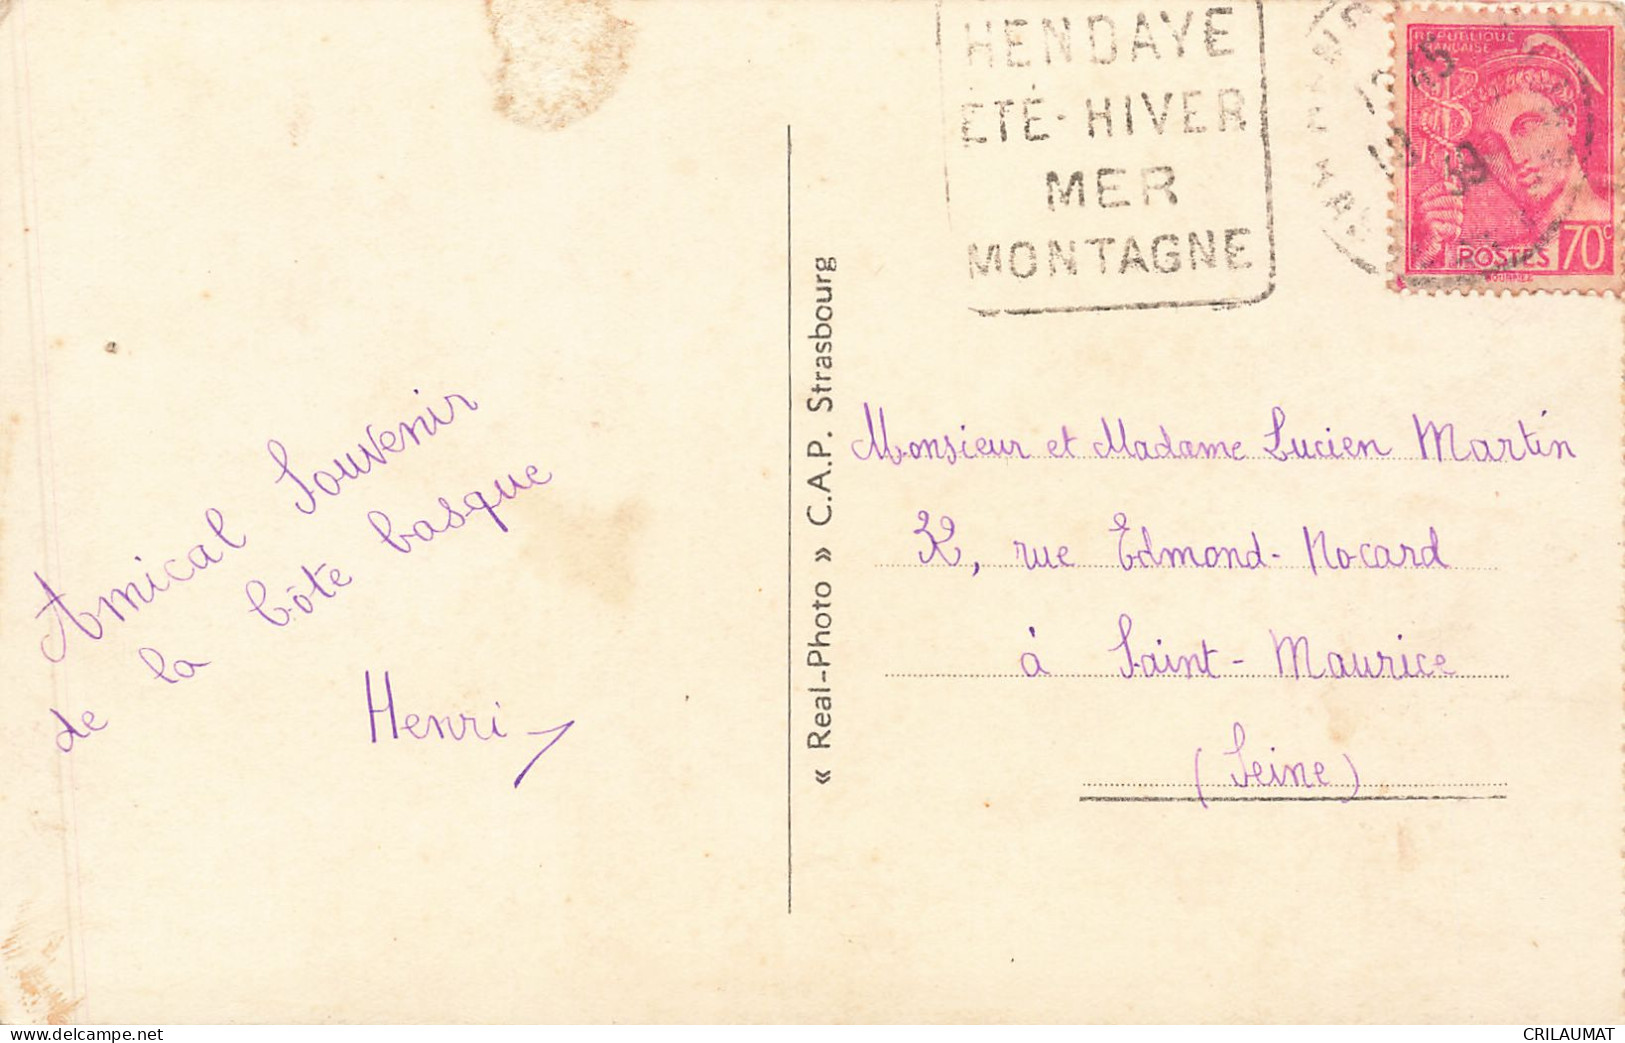 HENDAYE
ÉTÉ-HIVER
MER
MONTAGNE
45
39
REPUBLIQUE
FRANCAISE
POSTES 70c
Amical Souvenir
de la Côte basque
Henri
« Real-Photo » C.A.P. Strasbourg
Monsieur et Madame Lucien Martin
32, rue Edmond-Nocard
à Saint-Maurice
(Seine)
www.delcampe.net
CRILAUMAT